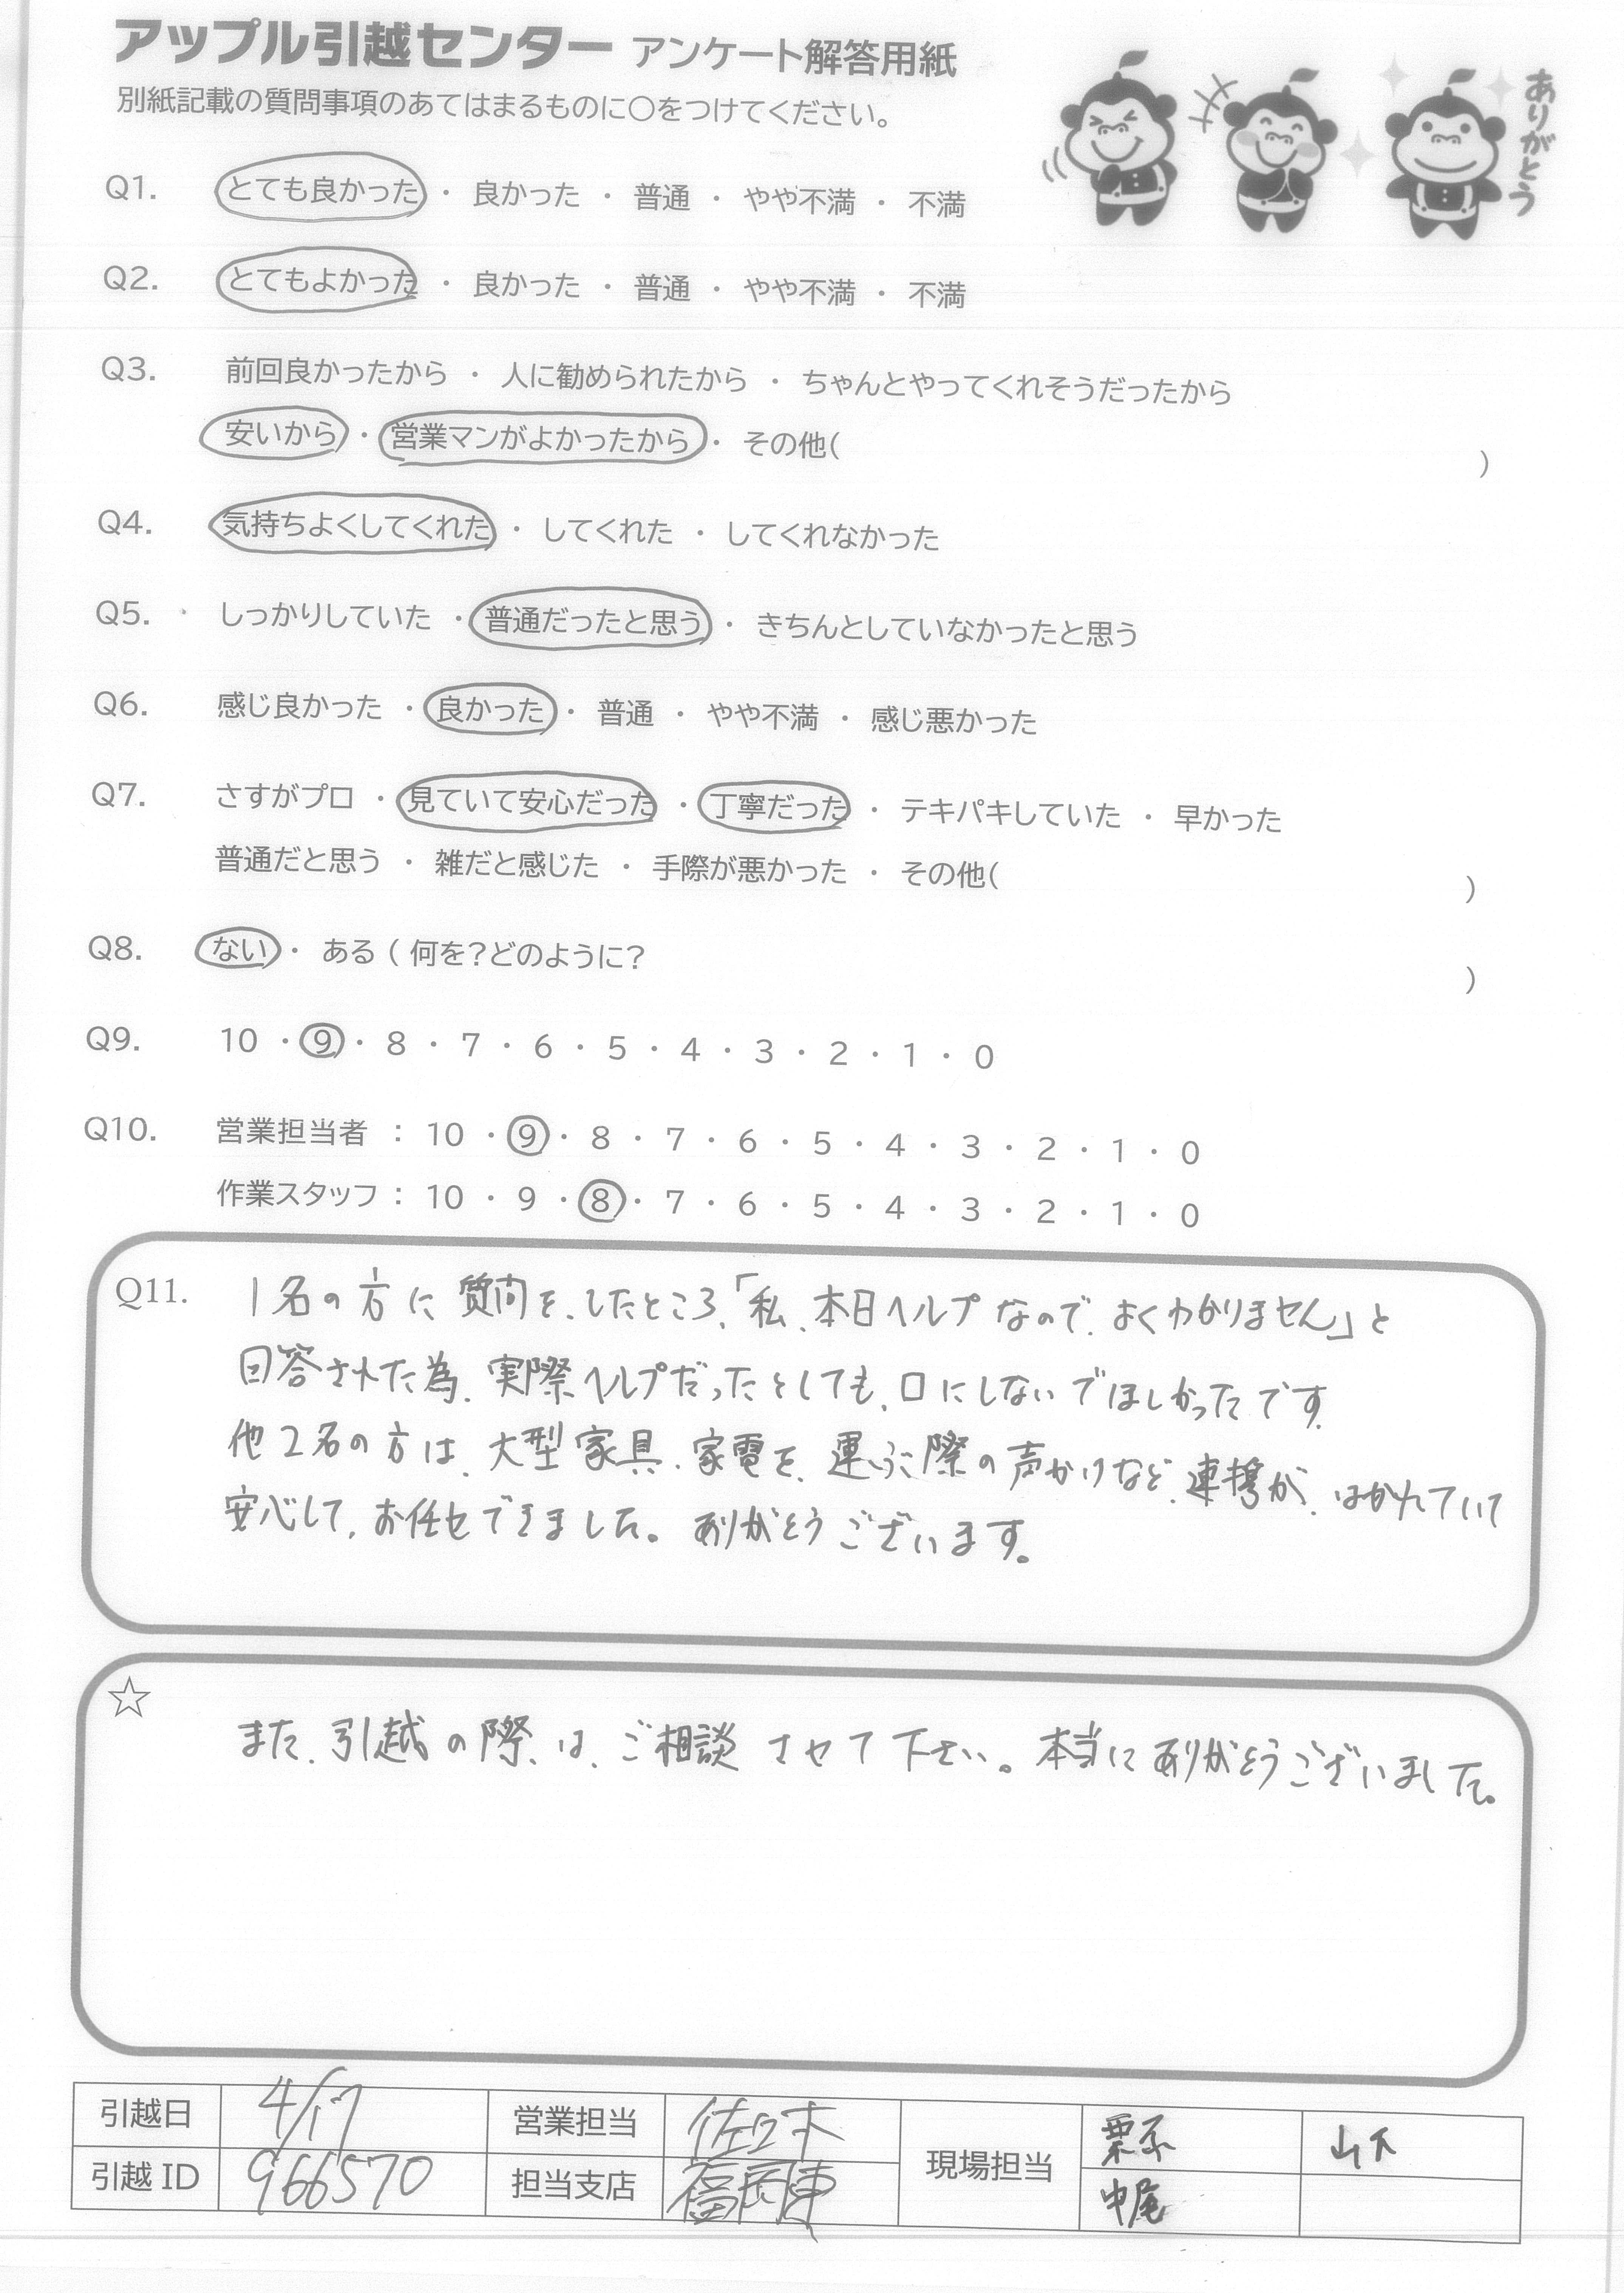 アップル引越センター アンケート解答用紙
別紙記載の質問事項のあてはまるものに○をつけてください。
ありがとう
Q1. とても良かった ・ 良かった ・ 普通 ・ やや不満 ・ 不満
Q2. とてもよかった ・ 良かった ・ 普通 ・ やや不満 ・ 不満
Q3. 前回良かったから ・ 人に勧められたから ・ ちゃんとやってくれそうだったから
安いから ・ 営業マンがよかったから ・ その他( )
Q4. 気持ちよくしてくれた ・ してくれた ・ してくれなかった
Q5. しっかりしていた ・ 普通だったと思う ・ きちんとしていなかったと思う
Q6. 感じ良かった ・ 良かった ・ 普通 ・ やや不満 ・ 感じ悪かった
Q7. さすがプロ ・ 見ていて安心だった ・ 丁寧だった ・ テキパキしていた ・ 早かった
普通だと思う ・ 雑だと感じた ・ 手際が悪かった ・ その他( )
Q8. ない ・ ある ( 何を?どのように? )
Q9. 10 ・ 9 ・ 8 ・ 7 ・ 6 ・ 5 ・ 4 ・ 3 ・ 2 ・ 1 ・ 0
Q10. 営業担当者 : 10 ・ 9 ・ 8 ・ 7 ・ 6 ・ 5 ・ 4 ・ 3 ・ 2 ・ 1 ・ 0
作業スタッフ : 10 ・ 9 ・ 8 ・ 7 ・ 6 ・ 5 ・ 4 ・ 3 ・ 2 ・ 1 ・ 0
Q11. 1名の方に質問を、したところ、「私、本日ヘルプなので、よくわかりません」と
回答された為、実際ヘルプだったとしても、口にしないでほしかったです。
他2名の方は、大型家具、家電を、運ぶ際の声かけなど、連携が、はかれていて
安心して、お任せできました。ありがとうございます。
☆ また、引越の際、は、ご相談させて下さい。本当にありがとうございました。
引越日 4/17 営業担当 佐々木 現場担当 栗永 山下
引越 ID 966570 担当支店 福岡東 中尾